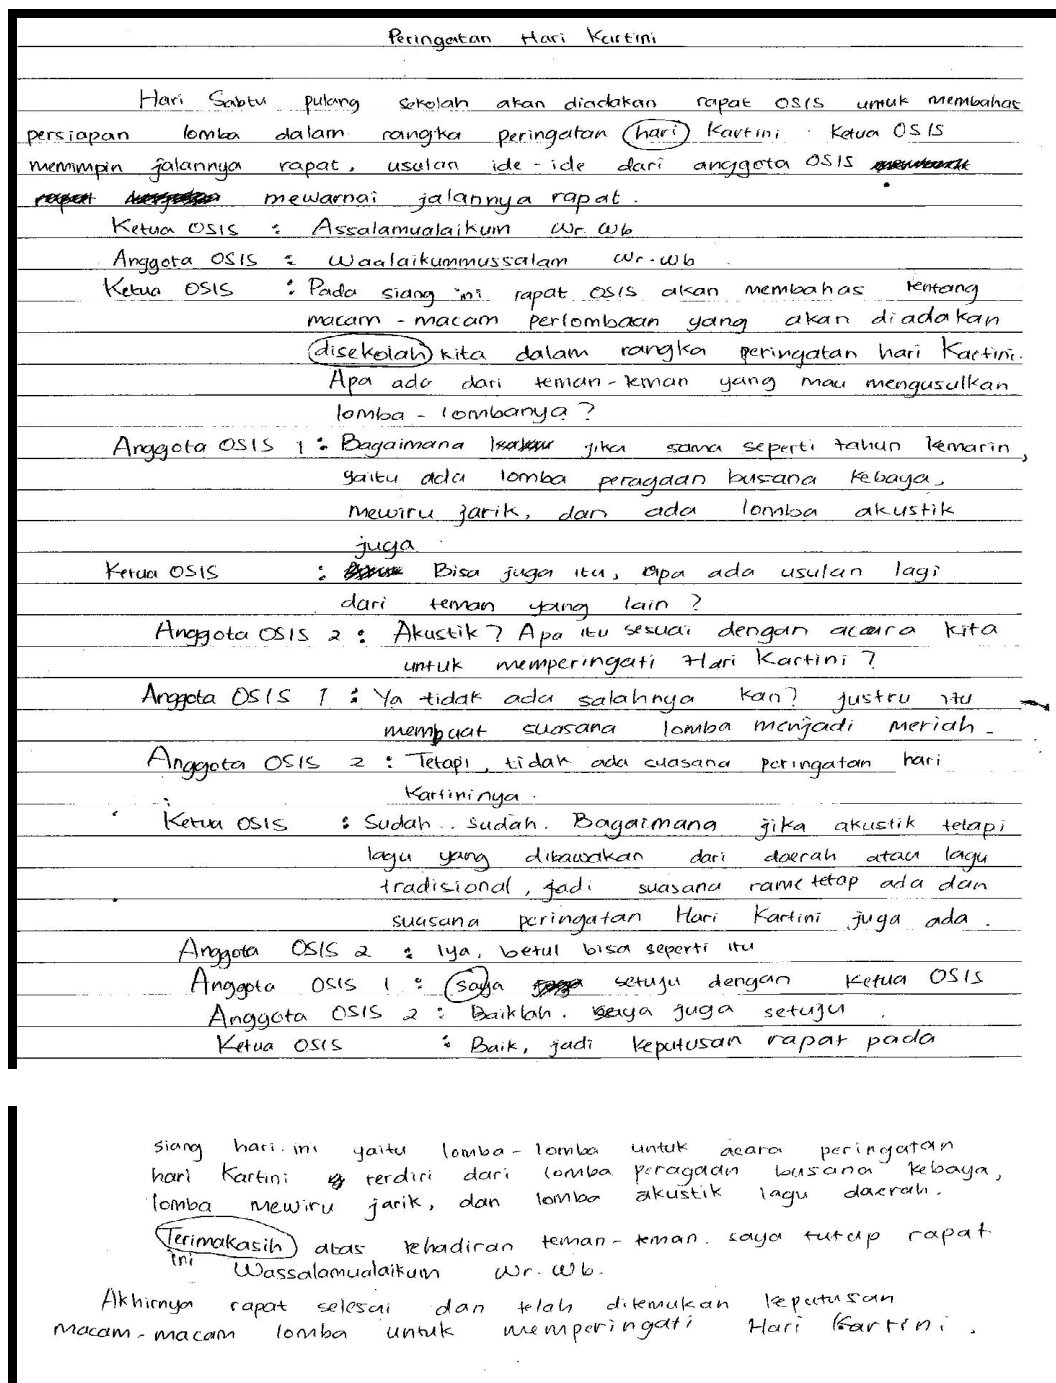 Peringatan Hari Kartini
Hari Sabtu pulang sekolah akan diadakan rapat OSIS untuk membahas
persiapan lomba dalam rangka peringatan hari Kartini. Ketua OSIS
memimpin jalannya rapat, usulan ide-ide dari anggota OSIS
mewarnai jalannya rapat.
Ketua OSIS : Assalamualaikum Wr. Wb
Anggota OSIS : Waalaikummussalam Wr. Wb.
Ketua OSIS : Pada siang ini rapat OSIS akan membahas tentang
macam-macam perlombaan yang akan diadakan
disekolah kita dalam rangka peringatan hari Kartini.
Apa ada dari teman-teman yang mau mengusulkan
lomba-lombanya?
Anggota OSIS 1 : Bagaimana jika sama seperti tahun kemarin,
yaitu ada lomba peragaan busana kebaya,
mewiru jarik, dan ada lomba akustik
juga.
Ketua OSIS : Bisa juga itu, apa ada usulan lagi
dari teman yang lain?
Anggota OSIS 2 : Akustik? Apa itu sesuai dengan acara kita
untuk memperingati Hari Kartini?
Anggota OSIS 1 : Ya tidak ada salahnya kan? justru itu
membuat suasana lomba menjadi meriah.
Anggota OSIS 2 : Tetapi, tidak ada suasana peringatan hari
Kartininya.
Ketua OSIS : Sudah.. sudah. Bagaimana jika akustik tetapi
lagu yang dibawakan dari daerah atau lagu
tradisional, jadi suasana rame tetap ada dan
suasana peringatan Hari Kartini juga ada.
Anggota OSIS 2 : Iya, betul bisa seperti itu
Anggota OSIS 1 : saya setuju dengan Ketua OSIS
Anggota OSIS 2 : Baiklah. saya juga setuju.
Ketua OSIS : Baik, jadi keputusan rapat pada
siang hari ini yaitu lomba-lomba untuk acara peringatan
hari Kartini terdiri dari lomba peragaan busana kebaya,
lomba mewiru jarik, dan lomba akustik lagu daerah.
Terimakasih atas kehadiran teman-teman. saya tutup rapat
ini Wassalamualaikum Wr. Wb.
Akhirnya rapat selesai dan telah ditemukan keputusan
macam-macam lomba untuk memperingati Hari Kartini.